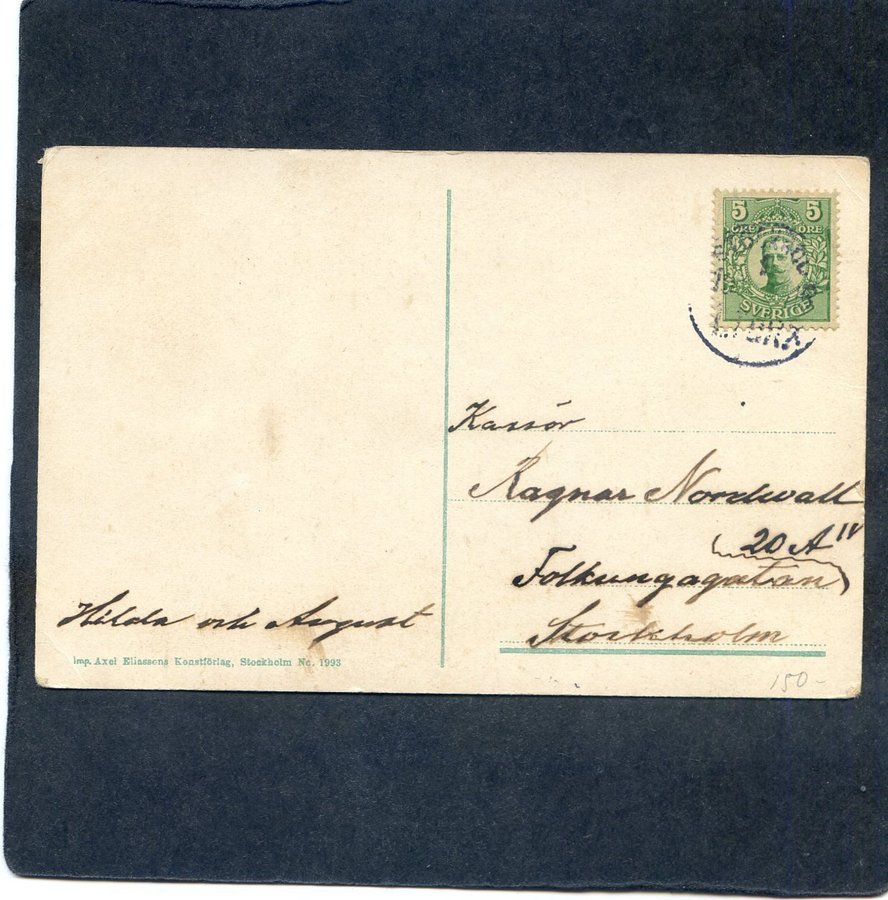 5 5
ÖRE ÖRE
SVERIGE
Kassör
Ragnar Nordwall
20 A IV
Folkungagatan
Stockholm
Hilda och August
Imp. Axel Eliassons Konstförlag, Stockholm No. 1993
150-